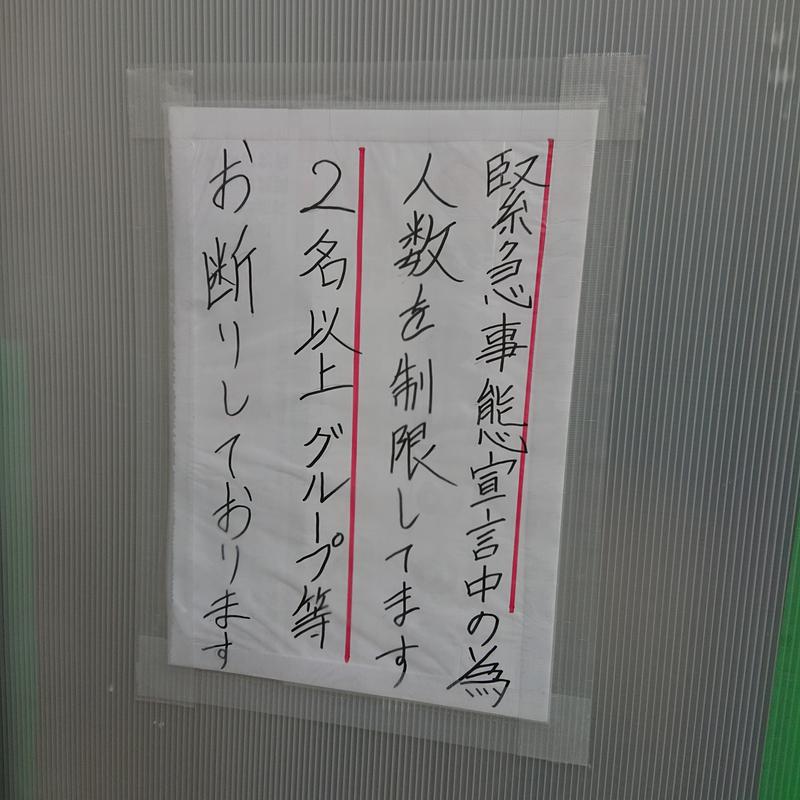 緊急事態宣言中の為
人数を制限してます
2名以上グループ等
お断りしております